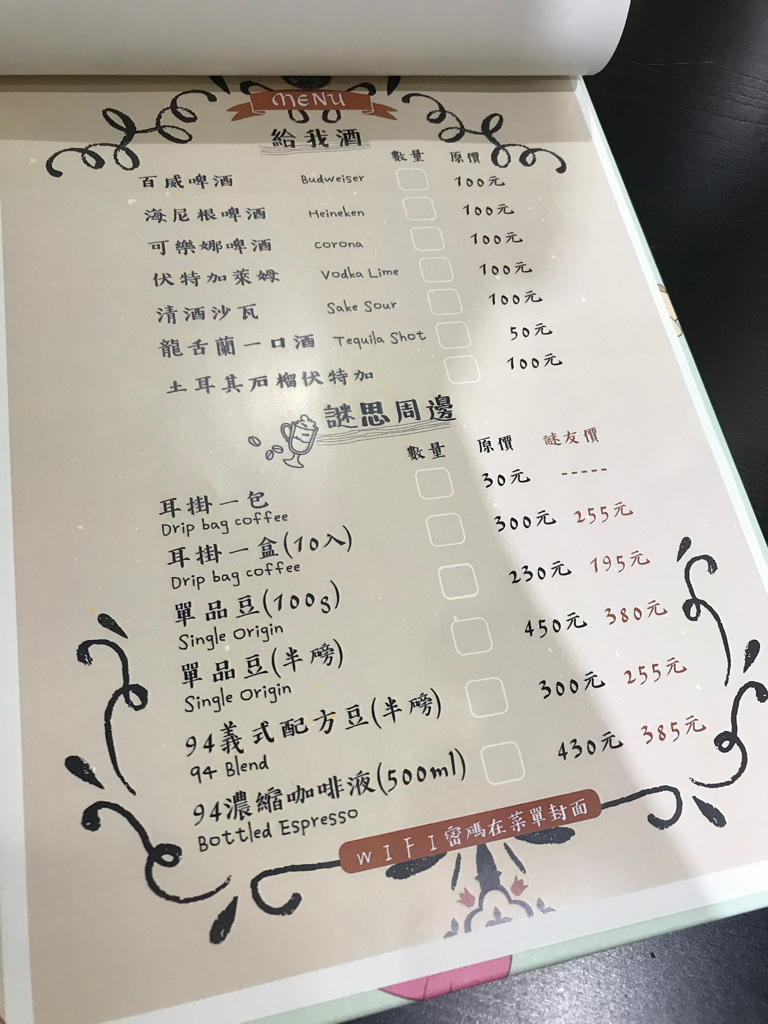 MENU
給我酒
數量 原價
百威啤酒 Budweiser 100元
海尼根啤酒 Heineken 100元
可樂娜啤酒 corona 100元
伏特加萊姆 Vodka Lime 100元
清酒沙瓦 Sake Sour 100元
龍舌蘭一口酒 Tequila Shot 50元
土耳其石榴伏特加 100元
謎思周邊
數量 原價 謎友價
耳掛一包 30元 -----
Drip bag coffee
耳掛一盒(10入) 300元 255元
Drip bag coffee
單品豆(100g) 230元 195元
Single Origin
單品豆(半磅) 450元 380元
Single Origin
94義式配方豆(半磅) 300元 255元
94 Blend
94濃縮咖啡液(500ml) 430元 385元
Bottled Espresso
WIFI密碼在菜單封面